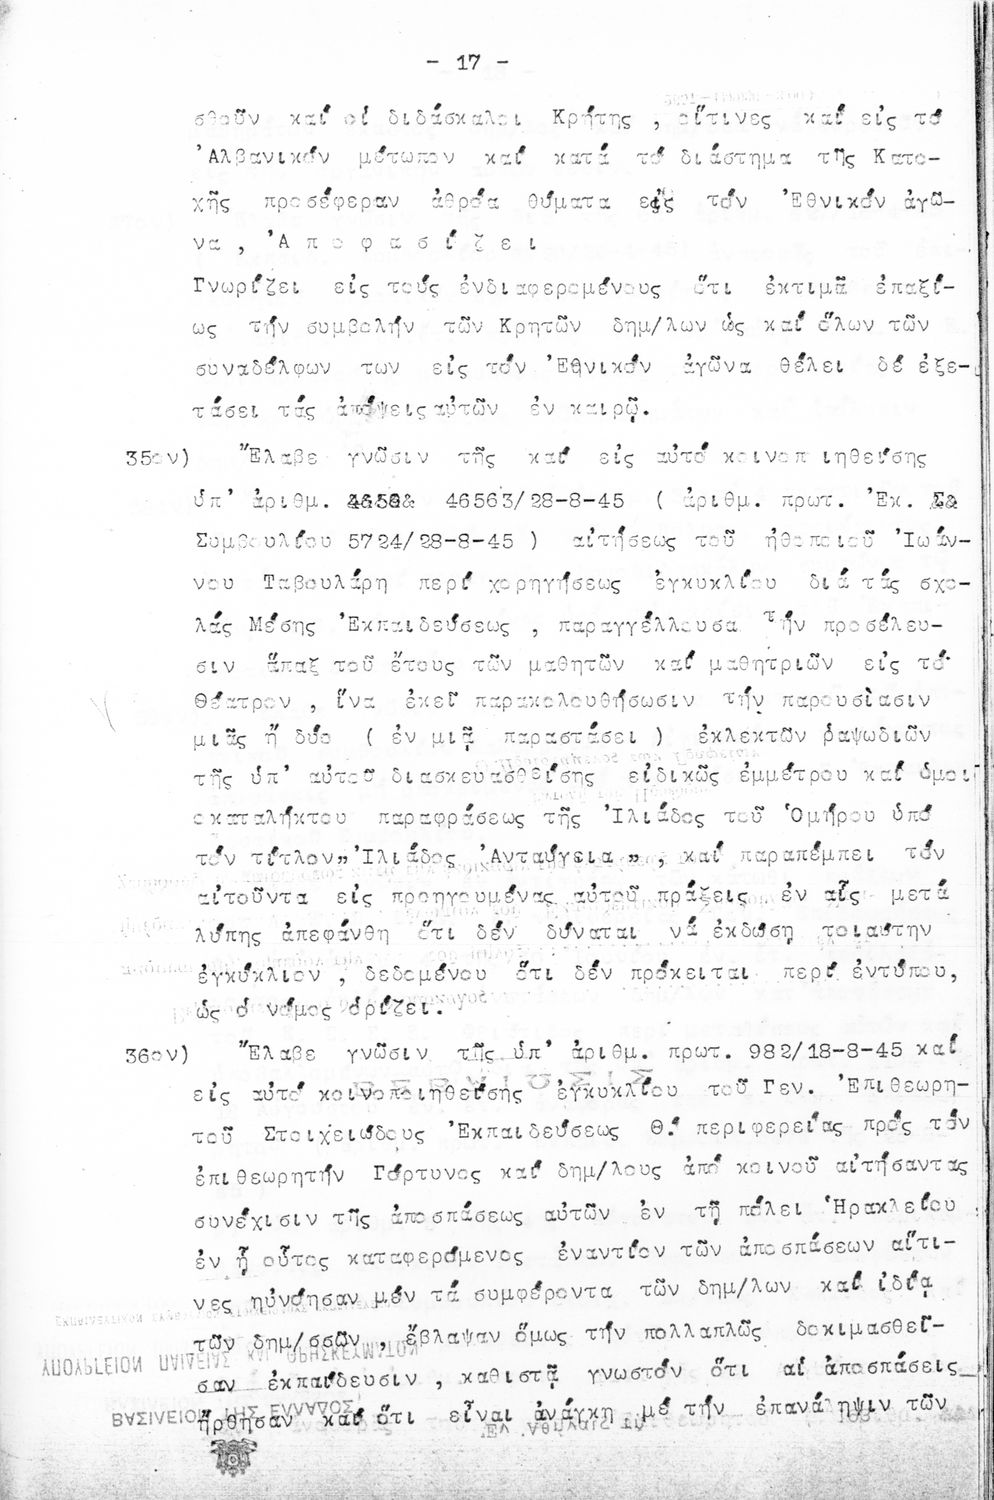 - 17 -
σθοῦν καί οἱ διδάσκαλοι Κρήτης , οἵτινες καί εἰς τό
'Αλβανικόν μέτωπον καί κατά τό διάστημα τῆς Κατο-
χῆς προσέφεραν ἀθρόα θύματα εἰς τόν 'Εθνικόν ἀγῶ-
να , 'Α π ο φ α σ ί ζ ε ι
Γνωρίζει εἰς τούς ἐνδιαφερομένους ὅτι ἐκτιμᾶ ἐπαξί-
ως τήν συμβολήν τῶν Κρητῶν δημ/λων ὡς καί ὅλων τῶν
συναδέλφων των εἰς τόν 'Εθνικόν ἀγῶνα θέλει δέ ἐξε-
τάσει τάς ἀπόψεις αὐτῶν ἐν καιρῷ.
35ον) Ἔλαβε γνῶσιν τῆς καί εἰς αὐτό κοινοπιηθείσης
ὑπ' ἀριθμ. 46563/28-8-45 ( ἀριθμ. πρωτ. 'Εκ.
Συμβουλίου 5724/28-8-45 ) αἰτήσεως τοῦ ἠθοποιοῦ 'Ιωάν-
νου Ταβουλάρη περί χορηγήσεως ἐγκυκλίου διά τάς σχο-
λάς Μέσης 'Εκπαιδεύσεως , παραγγέλλουσα τήν προσέλευ-
σιν ἅπαξ τοῦ ἔτους τῶν μαθητῶν καί μαθητριῶν εἰς τό
Θέατρον , ἵνα ἐκεῖ παρακολουθήσωσιν τήν παρουσίασιν
μιᾶς ἤ δύο ( ἐν μιᾷ παραστάσει ) ἐκλεκτῶν ῥαψωδιῶν
τῆς ὑπ' αὐτοῦ διασκευασθείσης εἰδικῶς ἐμμέτρου καί ὁμοι
οκαταλήκτου παραφράσεως τῆς 'Ιλιάδος τοῦ Ὁμήρου ὑπό
τόν τίτλον„ 'Ιλιάδος 'Ανταύγεια „ , καί παραπέμπει τόν
αἰτοῦντα εἰς προηγουμένας αὐτοῦ πράξεις ἐν αἷς μετά
λύπης ἀπεφάνθη ὅτι δέν δύναται νά ἐκδώσῃ τοιαύτην
ἐγκύκλιον , δεδομένου ὅτι δέν πρόκειται περί ἐντύπου,
ὡς ὁ νόμος ὁρίζει.
36ον) Ἔλαβε γνῶσιν τῆς ὑπ' ἀριθμ. πρωτ. 982/18-8-45 καί
εἰς αὐτό κοινοποιηθείσης ἐγκυκλίου τοῦ Γεν. 'Επιθεωρη-
τοῦ Στοιχειώδους 'Εκπαιδεύσεως Θ.' περιφερείας πρός τόν
ἐπιθεωρητήν Γόρτυνος καί δημ/λους ἀπό κοινοῦ αἰτήσαντας
συνέχισιν τῆς ἀποσπάσεως αὐτῶν ἐν τῇ πόλει Ἡρακλείου
ἐν ᾗ οὗτος καταφερόμενος ἐναντίον τῶν ἀποσπάσεων αἵτι-
νες ηὐνόησαν μέν τά συμφέροντα τῶν δημ/λων καί ἰδίᾳ
τῶν δημ/σσῶν , ἔβλαψαν ὅμως τήν πολλαπλῶς δοκιμασθεῖ-
σαν ἐκπαίδευσιν , καθιστᾷ γνωστόν ὅτι αἱ ἀποσπάσεις
ἤρθησαν καί ὅτι εἶναι ἀνάγκη μέ τήν ἐπανάληψιν τῶν